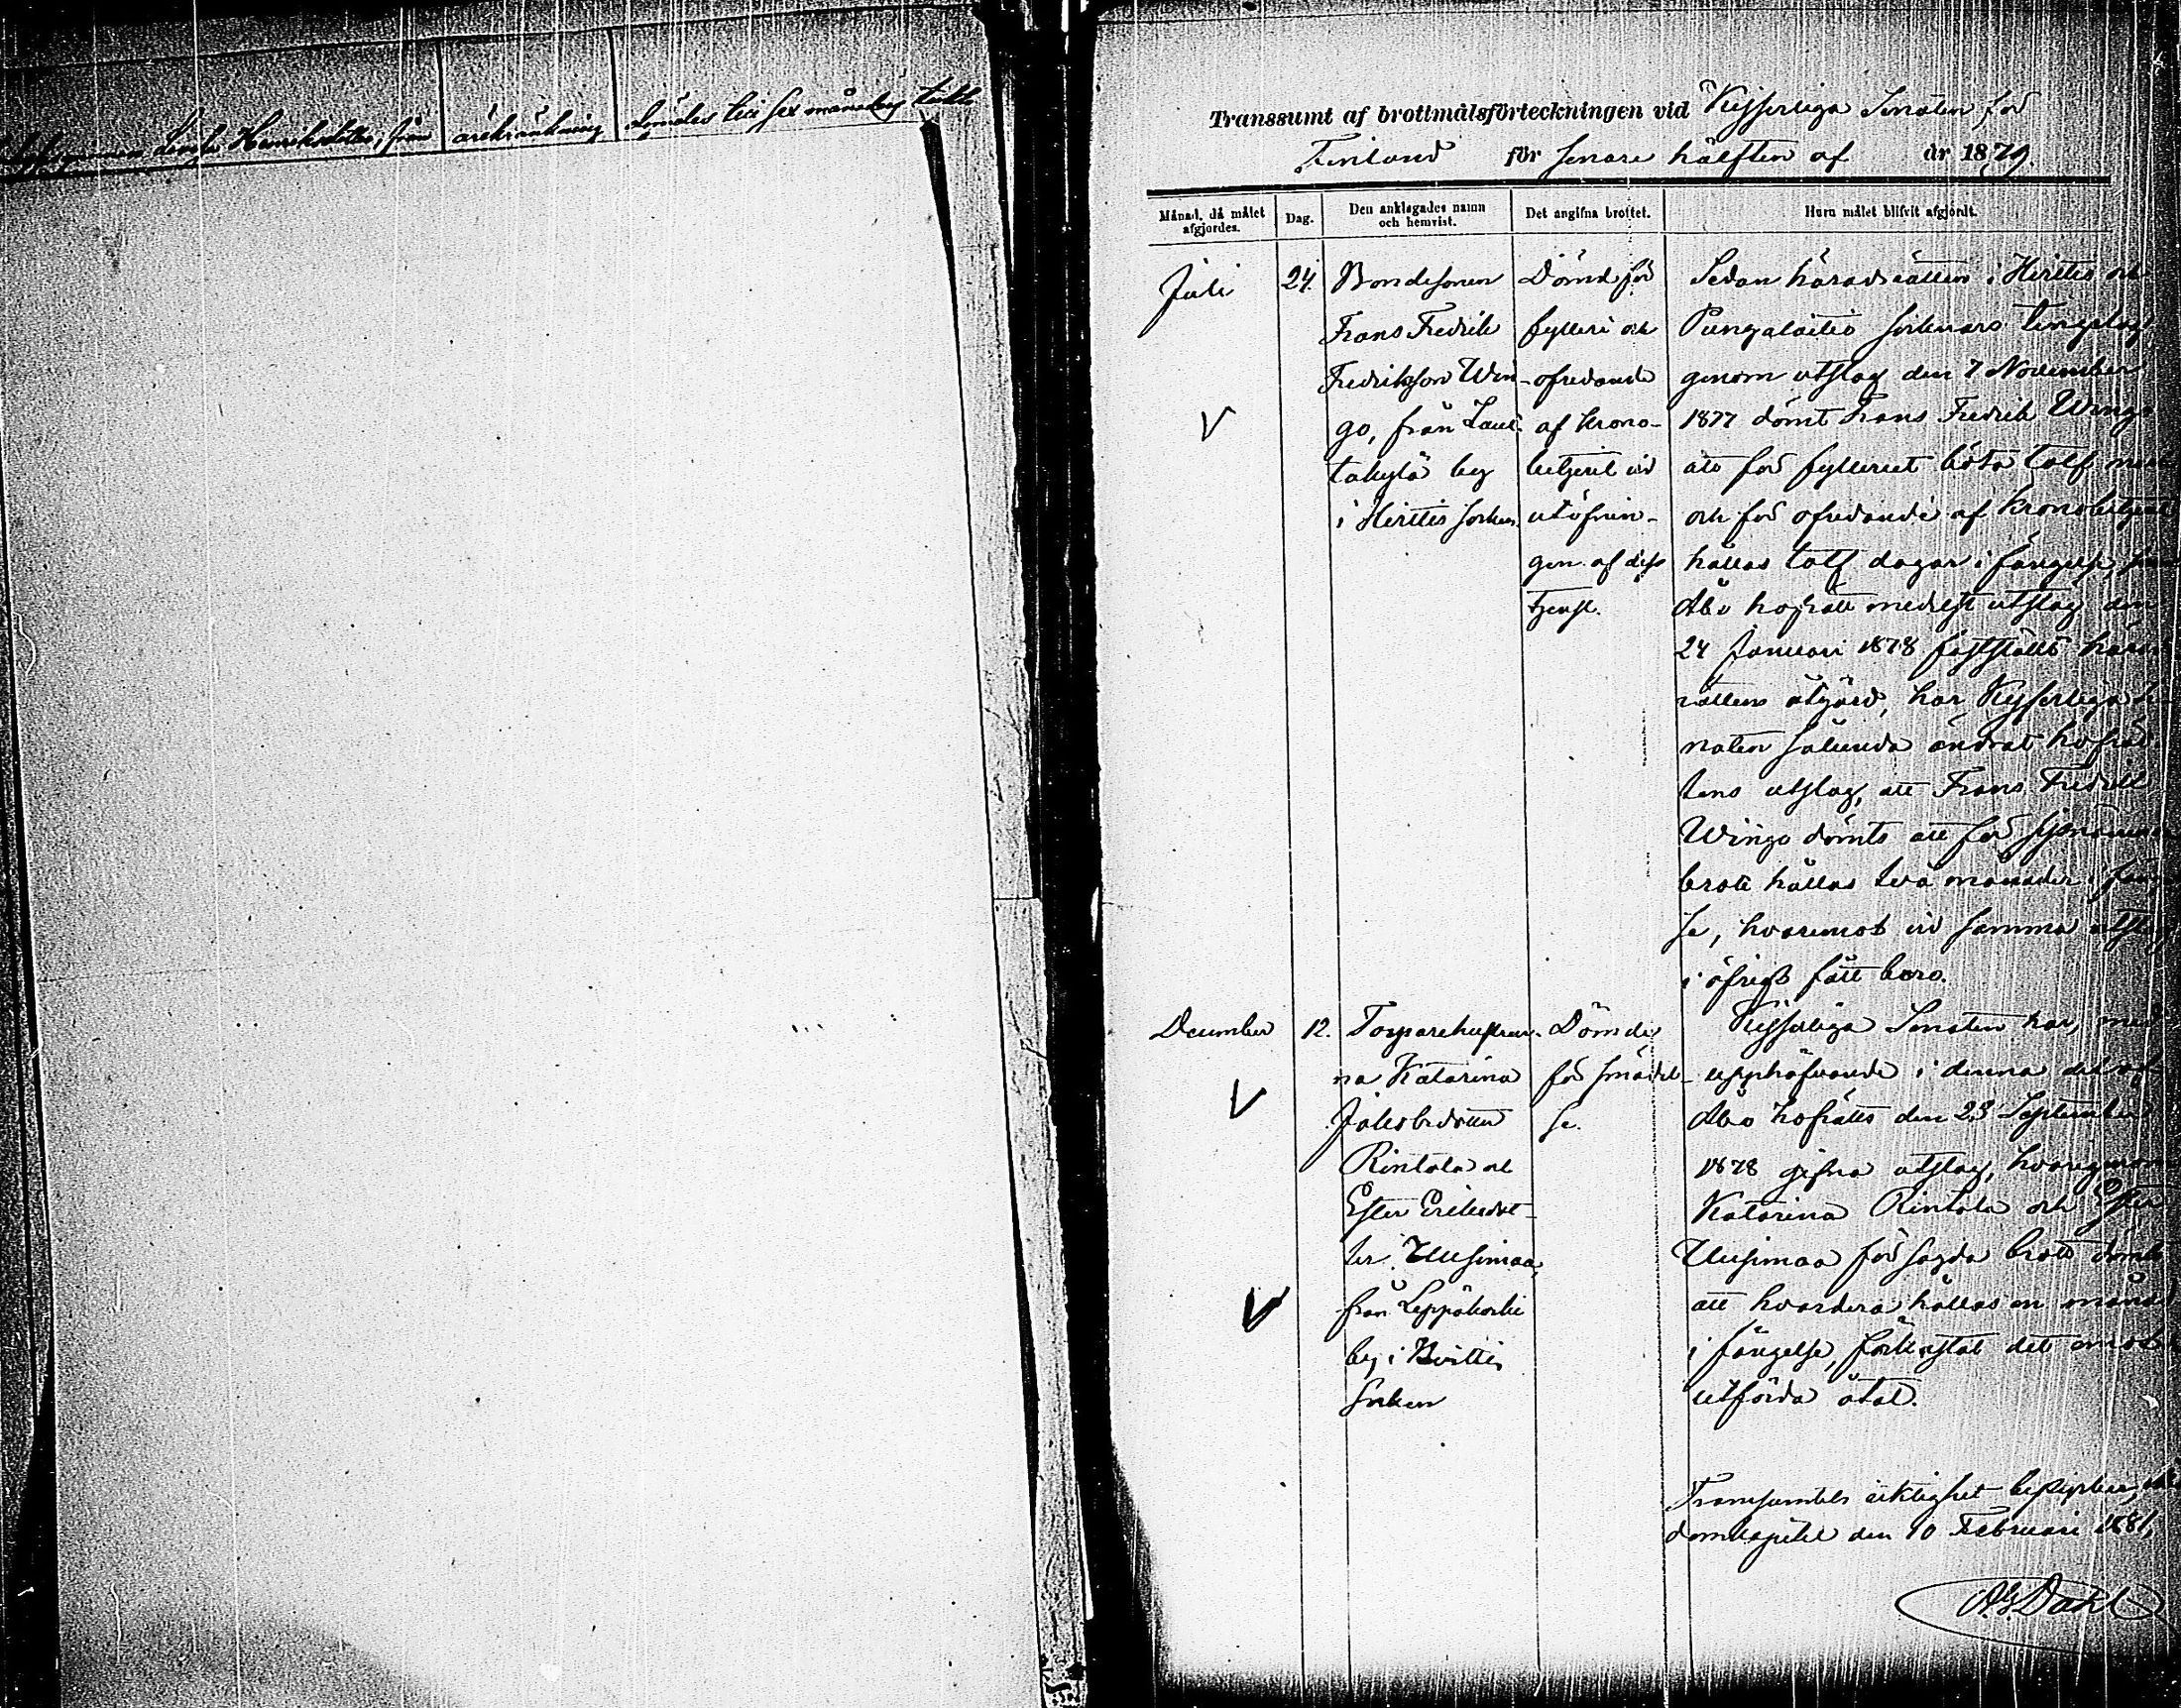 Henriksdotter, från ärekränkning dömdes till sex månaders
Transsumt af brottmålsförteckningen vid Kejserliga Senaten för
Finland för senare hälften af år 1879.
Månad, då målet afgjordes.
Dag.
Den anklagades namn och hemvist.
Det angifna brottet.
Huru målet blifvit afgjordt.
Juli
24.
Bondesonen
Frans Fredrik
Fredriksson Win-
go, från Laui-
takylä by
i Hvittis socken
Dömd för
fylleri och
ofredande
af krono-
betjent vid
utöfnin-
gen af dess
tjenst.
Sedan häradsrätten i Hvittis och
Pungalaitio socknars tingslag,
genom utslag den 7 November
1877 dömt Frans Fredrik Wingo
att för fylleriet böta tolf mark
och för ofredande af kronobetjent
hållas tolf dagar i fängelse,
Åbo hofrätt medelst utslag den
24 Januari 1878 fastställt härads
rättens åtgärd, har Kejserliga Se
naten sålunda ändrat hofrät
tens utslag, att Frans Fredrik
Wingo dömts att för sistnämnda
brott hållas två månader i fän
se, hvaremot vid samma utslag
i öfrigt fått bero.
December
12.
Torparehustrur-
na Katarina
Jakobsdotter
Rintala och
Ester Eriksdot-
ter Uusimaa,
från Leppäkoski
by i Hvittis
socken
Dömde
för smädel-
se.
Kejserliga Senaten har, med
upphäfvande i denna del af
Åbo hofrätts den 23 September
1878 gifna utslag, hvarigenom
Katarina Rintala och Ester
Uusimaa för sagda brott dömts
att hvardera hållas en månad
i fängelse, förkastat det emot
utförda åtal.
Transsumtets riktighet betygar,
domkapitel den 10 Februari 1881,
AG Dahl